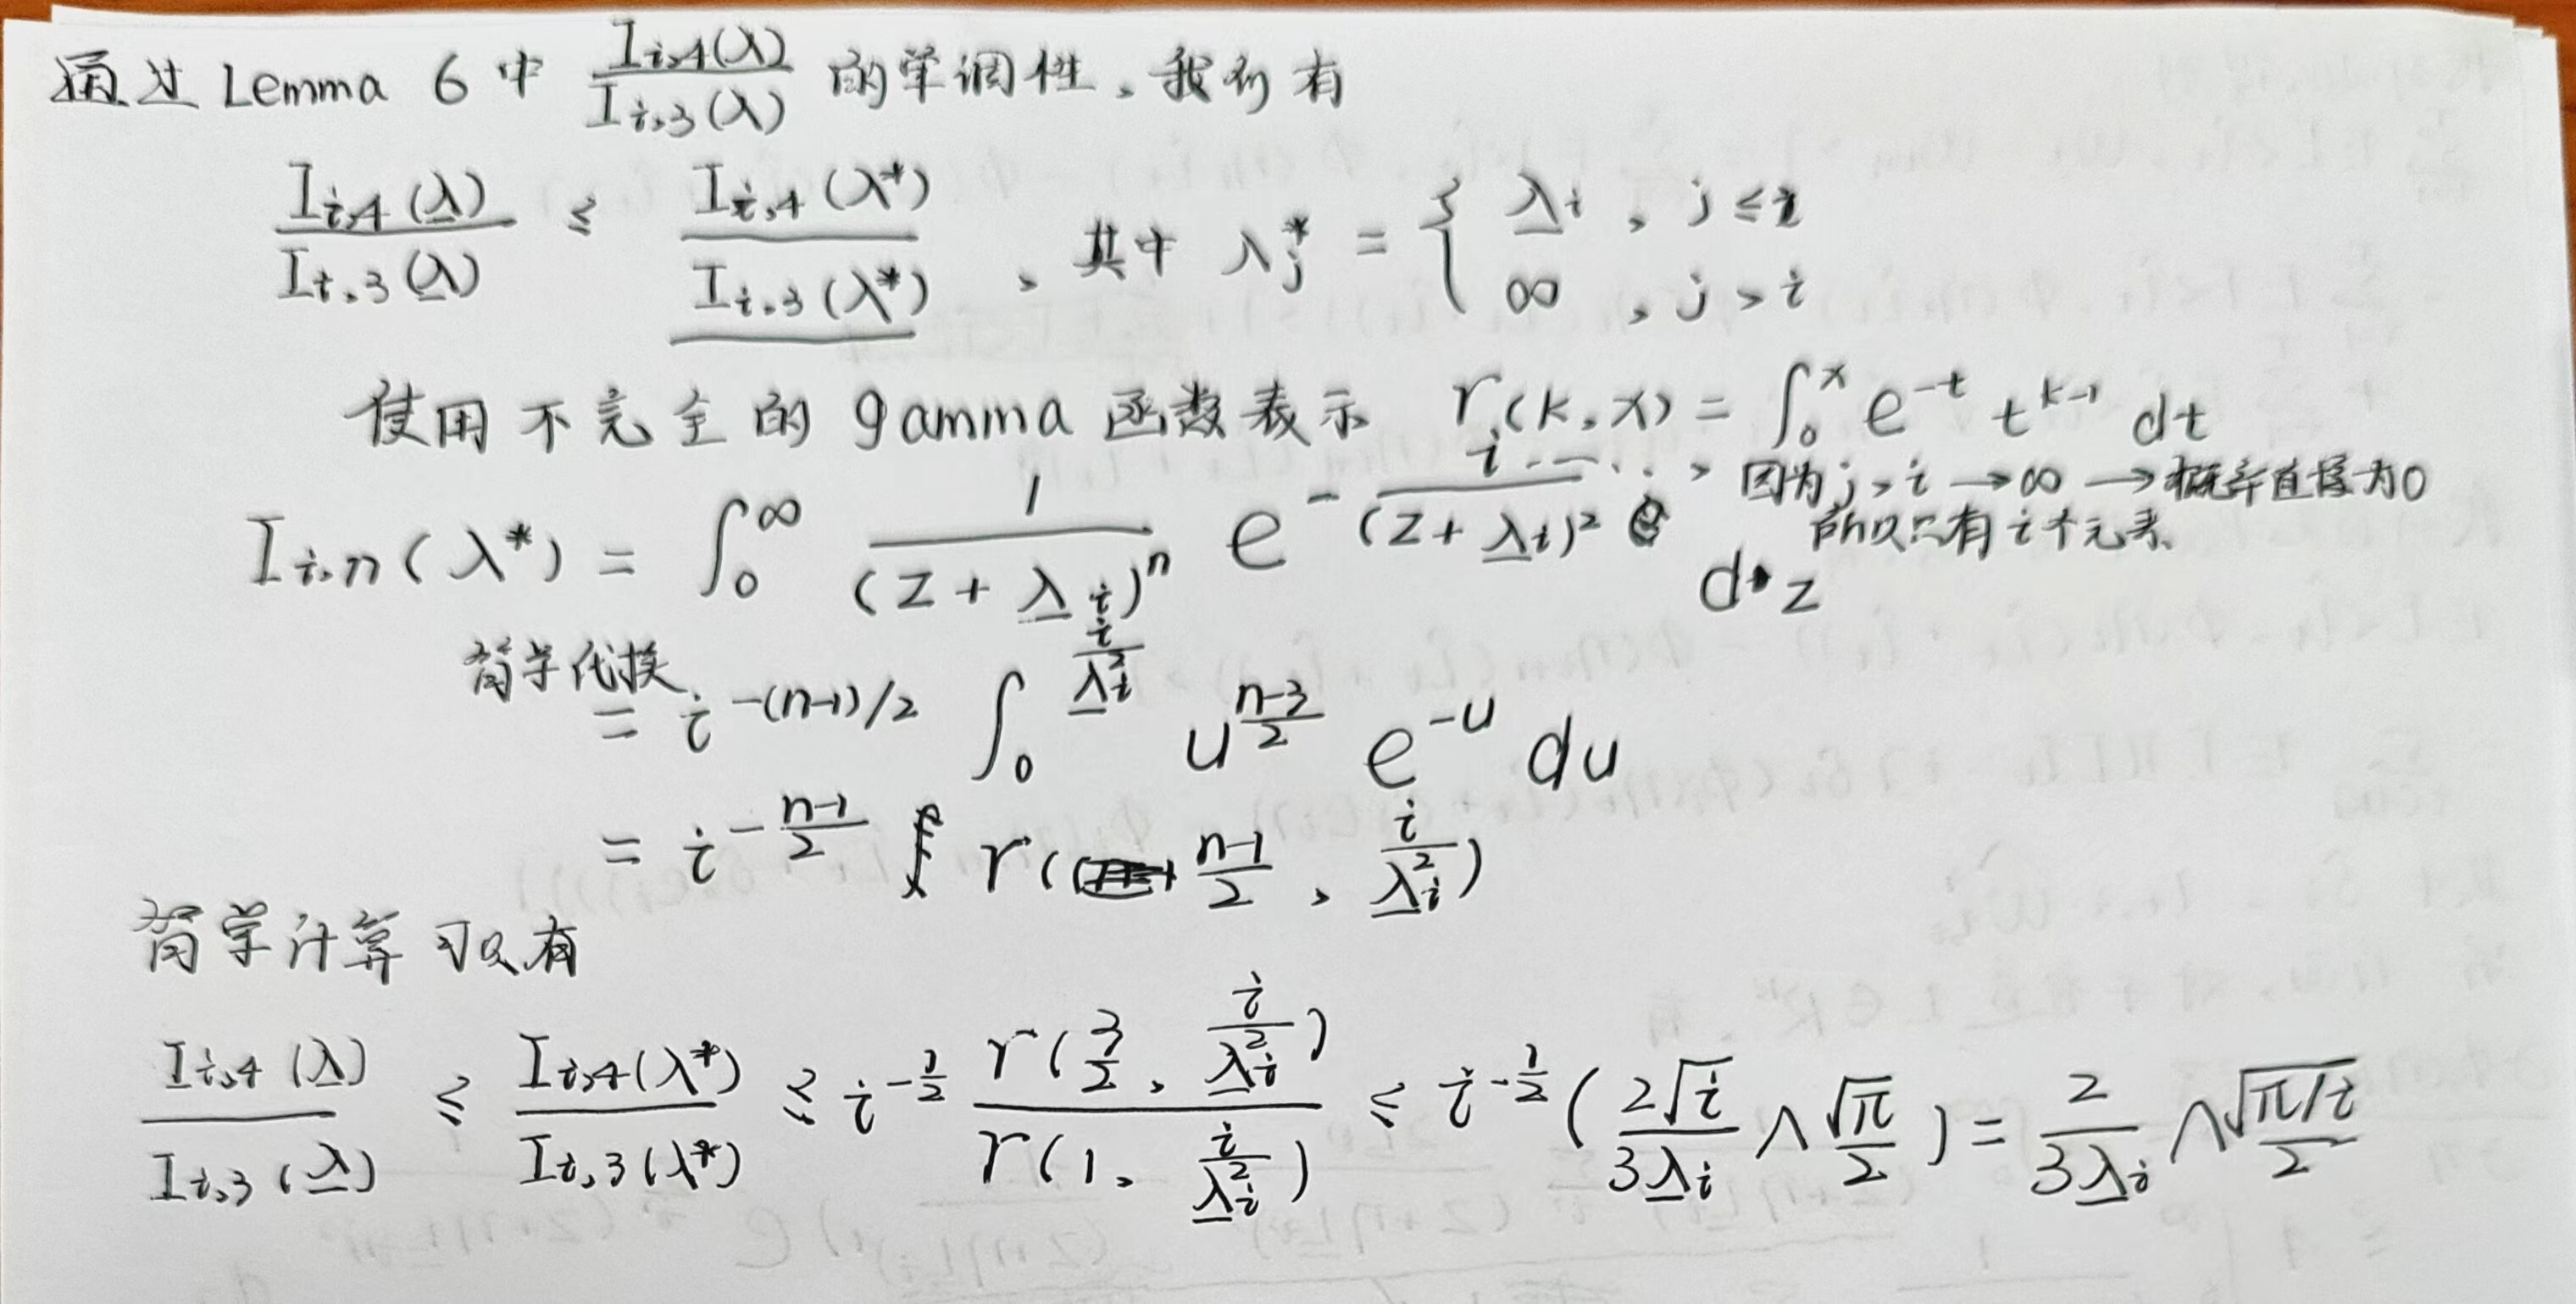 通过 Lemma 6 中 I_{i,4}(λ) / I_{i,3}(λ) 的单调性，我们有
I_{i,4}(λ) / I_{i,3}(λ) ≤ I_{i,4}(λ*) / I_{i,3}(λ*)，其中 λ_j* = { λ_i , j ≤ i ; ∞ , j > i
使用不完全的 gamma 函数表示 γ(k, x) = ∫_0^x e^{-t} t^{k-1} dt
因为 j > i → ∞ → 概率直接为0
所以只有 i 个元素
I_{i,n}(λ*) = ∫_0^∞ 1/(z + λ_i)^n e^{- i/(z + λ_i)^2} dz
简单代换
= i^{-(n-1)/2} ∫_0^{i/λ_i^2} u^{(n-3)/2} e^{-u} du
= i^{-(n-1)/2} γ( (n-1)/2 , i/λ_i^2 )
简单计算可以有
I_{i,4}(λ) / I_{i,3}(λ) ≤ I_{i,4}(λ*) / I_{i,3}(λ*) ≤ i^{-1/2} γ(3/2, i/λ_i^2) / γ(1, i/λ_i^2) ≤ i^{-1/2} ( 2√i / 3λ_i ∧ √π / 2 ) = 2 / 3λ_i ∧ √(π/i) / 2